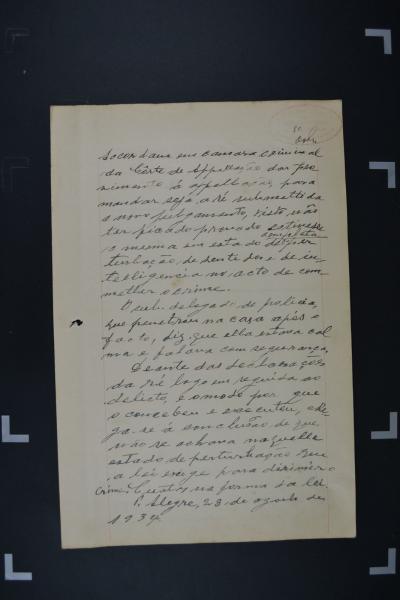 Accordam em camara criminal
da Côrte de Appellação dar pro-
vimento á appellação, para
mandar seja a ré submettida
a novo julgamento, visto não
ter ficado provado estivesse
a mesma em estado de completa per
turbação, de sentidos e de in-
telligencia no acto de com-
metter o crime.
O sub. delegado de policia,
que penetrou na casa após o
facto, diz que ella estava cal
ma e falava com segurança.
Deante das declarações
da ré logo em seguida ao
delicto, e o modo por que
o concebeu e executou, che-
ga-se á conclusão de que
não se achava naquelle
estado de perturbação que
a lei exige para dirimir o
crime. Custas na forma da lei.
P. Alegre, 23 de agosto de
1934